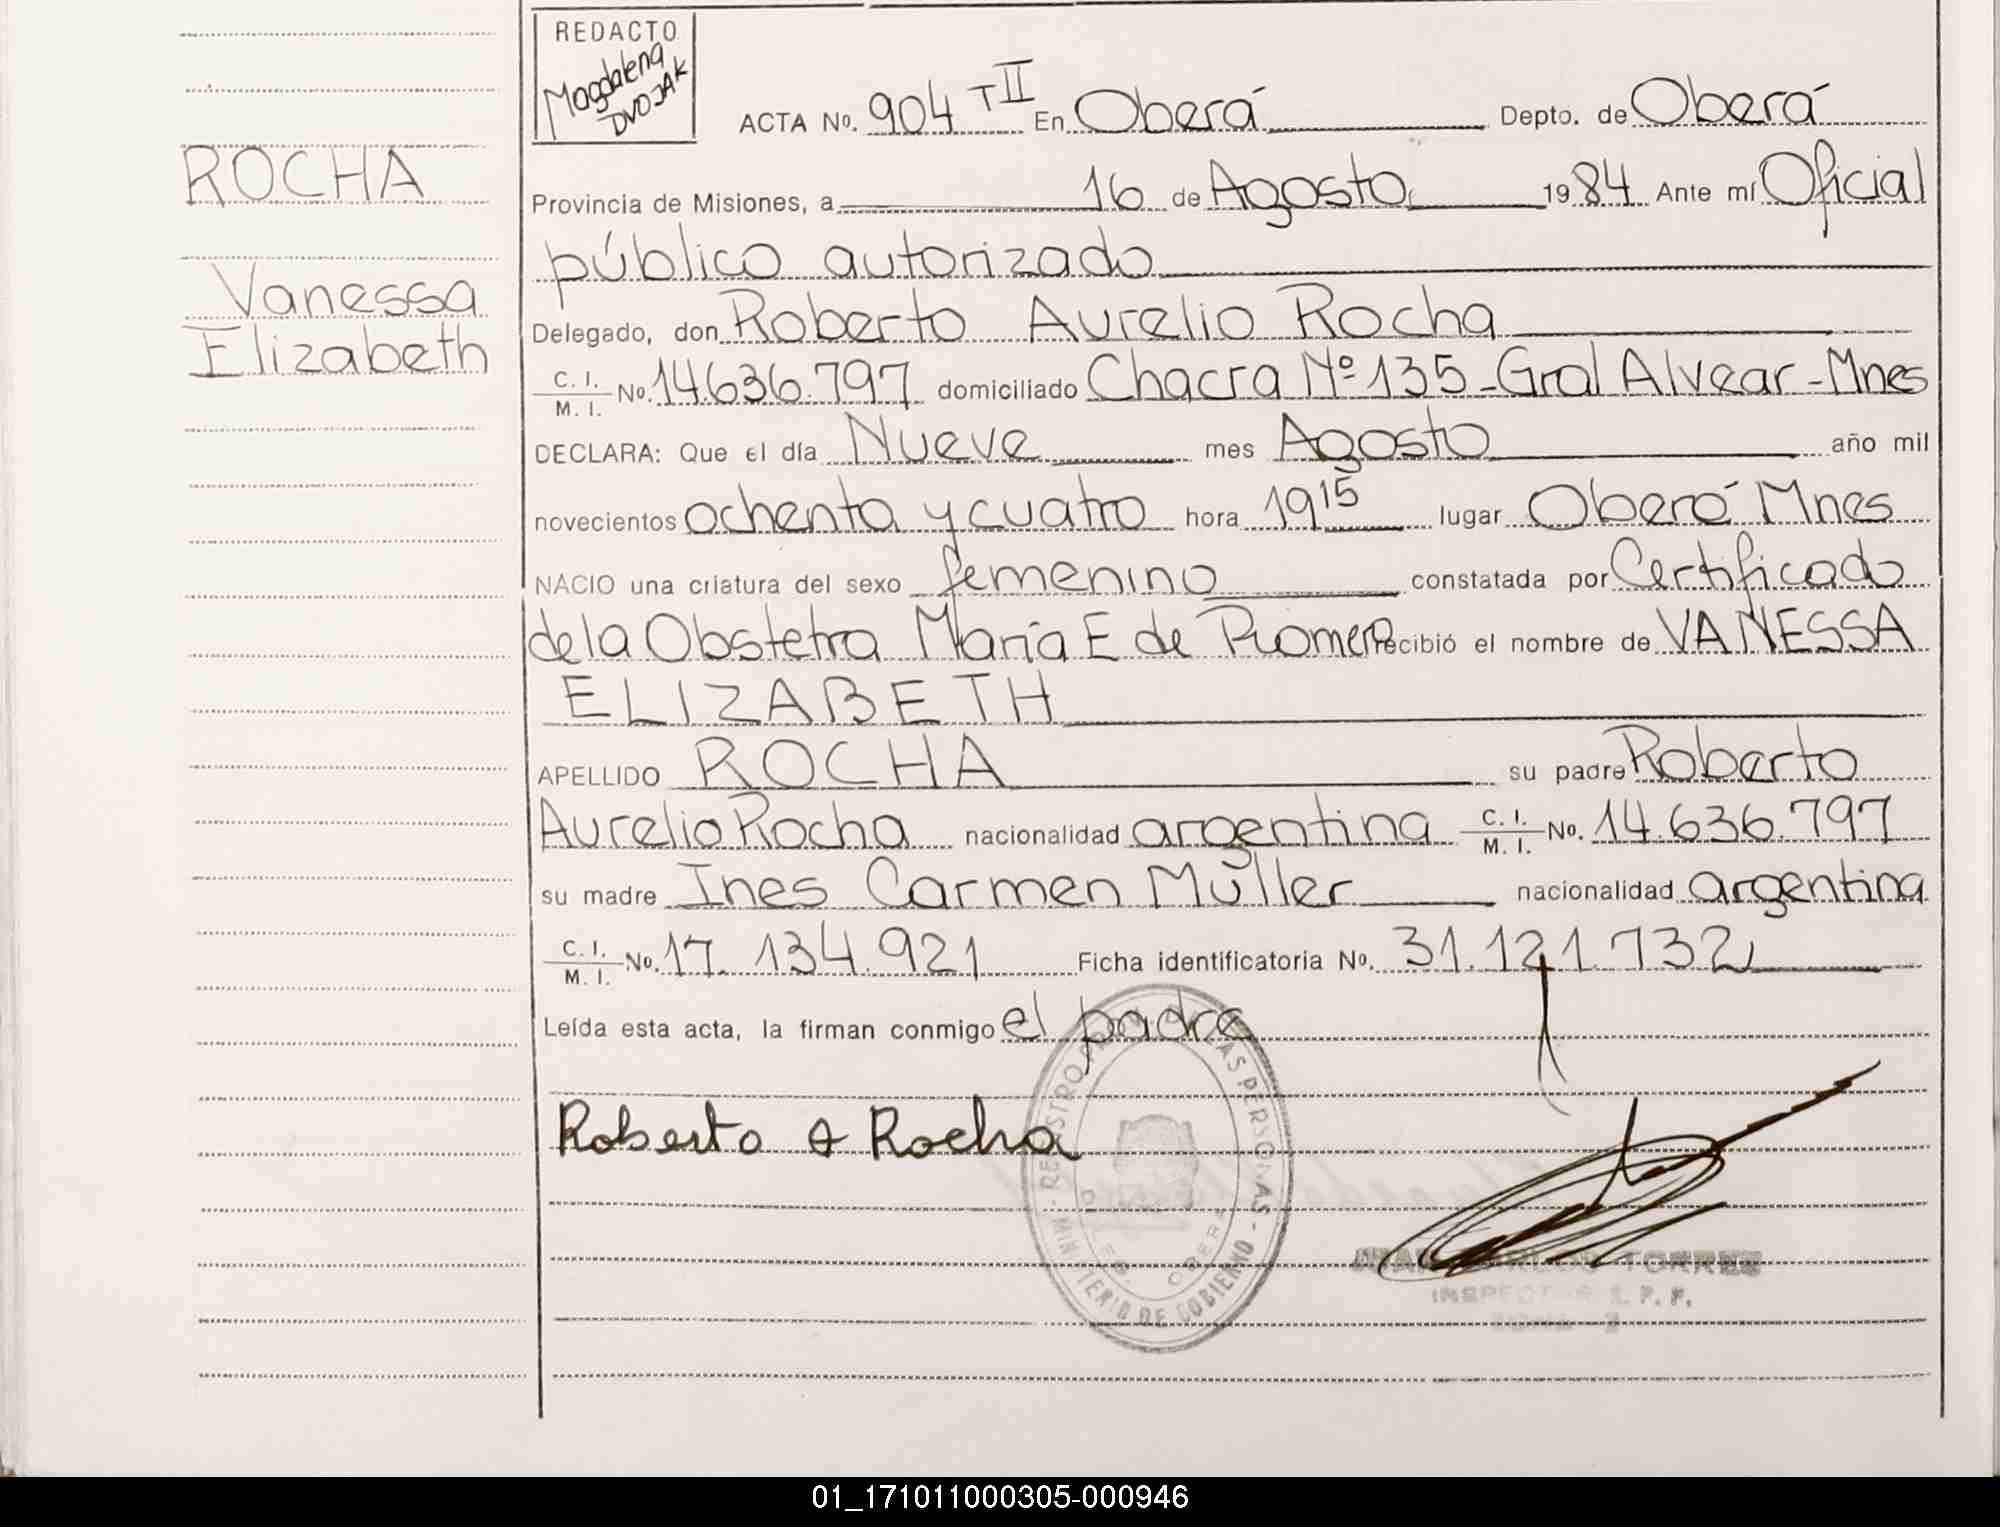 REDACTO
Magdalena
DVOJAK
ACTA No. 904 T II En Oberá Depto. de Oberá
ROCHA
Provincia de Misiones, a 16 de Agosto 1984 Ante mí Oficial
público autorizado
Vanessa
Elizabeth
Delegado, don Roberto Aurelio Rocha
C. I. / M. I. No. 14.636.797 domiciliado Chacra Nº 135 - Gral Alvear - Mnes
DECLARA: Que el día Nueve mes Agosto año mil
novecientos ochenta y cuatro hora 19 15 lugar Oberá Mnes
NACIO una criatura del sexo femenino constatada por Certificado
de la Obstetra María E de Romero recibió el nombre de VANESSA
ELIZABETH
APELLIDO ROCHA su padre Roberto
Aurelio Rocha nacionalidad argentina C. I. / M. I. No. 14.636.797
su madre Ines Carmen Müller nacionalidad argentina
C. I. / M. I. No. 17.134.921 Ficha identificatoria No. 31.121.732
Leída esta acta, la firman conmigo el padre
Roberto A Rocha
REGISTRO PROV. DE LAS PERSONAS - MINISTERIO DE GOBIERNO
OBERA
TORRES
INSPECTOR
01_171011000305-000946